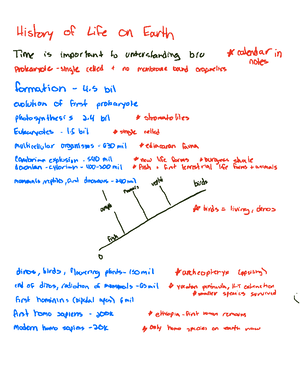 History of Life on Earth
Time is important to understanding bio * calendar in notes
Prokaryotes - single celled + no membrane bound organelles
formation - 4.5 bil
evolution of first prokaryote
photosynthesis 2.4 bil * stromatolites
Eukaryotes - 1.5 bil * single celled
multicellular organisms - 630 mil * ediacaran fauna
Cambrian explosion - 540 mil * new life forms * burgess shale
devonian - silurian - 400-300 mil * fish + first terrestrial life forms + animals
mammals, reptiles, first dinosaurs - 240 mil
birds
amph
fish
* birds = living dinos
0
dinos, birds, flowering plants - 150 mil * archaeopteryx
end of dinos, radiation of mammals - 65 mil * yucatan peninsula, hit extinction
* smaller species survived
First hominins 6 mil
First homo sapiens - 200K * ethiopia - first human remains
Modern homo sapiens - 20K * only homo species on earth now